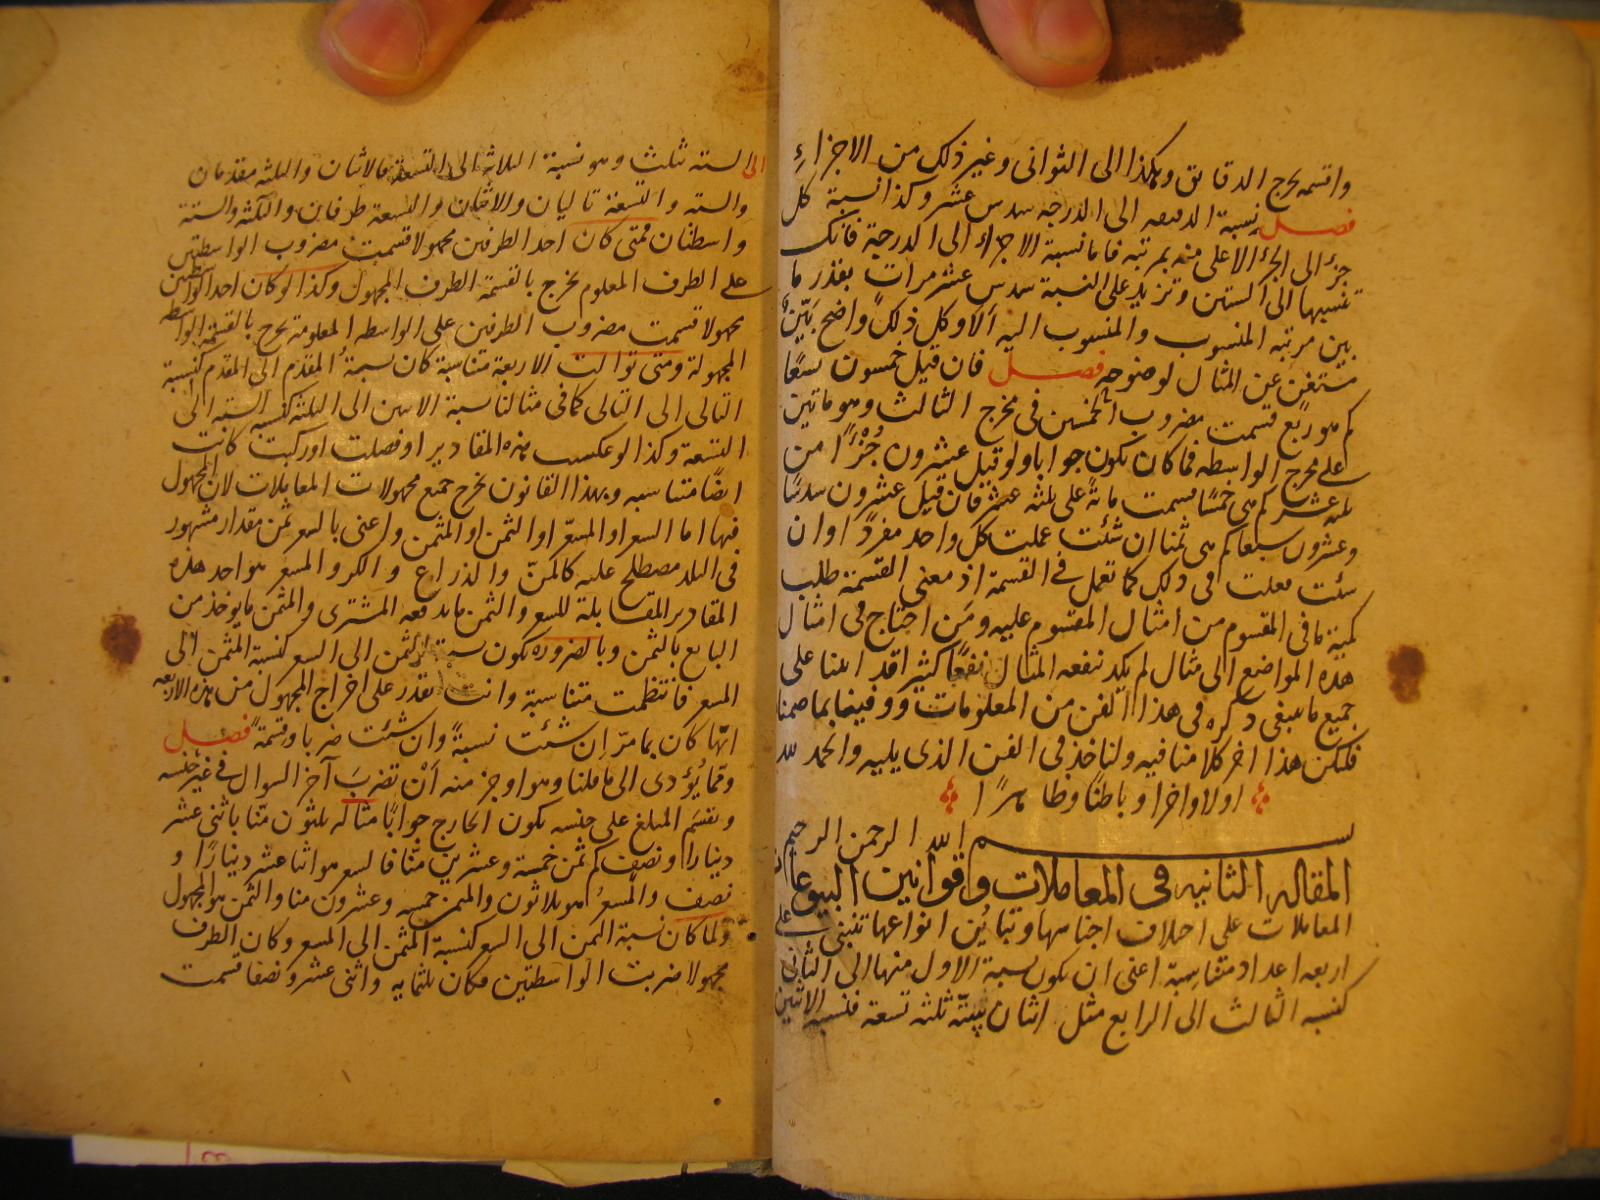 واقسمه يخرج الدقايق وهكذا الى الثوانى وغير ذلك من الاجزاء
فصل نسبة الدقيقه الى الدرجه سدس عشر وكذا نسبة كل
جزء الى الجزء الاعلى منه بمرتبه فاما نسبة الاجزاء الى الدرجة فانك
تنسبها الى الستين وتزيد على النسبة سدس عشر مرات بقدر ما
بين مرتبه المنسوب والمنسوب اليه الا وكل ذلك واضح بيّن
مستغن عن المثال لوضوحه فصل فان قيل خمسون تسعًا
كم هو ربع قسمت مضروب الخمسين فى مخرج الثالث وهو ماتين
على مخرج الواسطه فما كان يكون جوابا ولو قيل عشرون جُزْءًا من
ثلثه عشر كم هى خمسًا قسمت مائة على ثلثه عشر فان قيل عشرون سدسًا
وعشرون سبعا كم هى ثمنا ان شئت عملت كل واحد مفردًا وان
شئت فعلت فى ذلك كما تعمل فى القسمة اذ معنى القسمة طلب
كمية ما فى المقسوم من امثال المقسوم عليه ومَن احتاج فى امثال
هذه المواضع الى مثال لم يكد ينفعه المثال نفعًا كثيرا قد اتينا على
جميع ما ينبغى ذكره فى هذا الفن من المعلومات ووفينا بما ضمنا
فليكن هذا اخر كلامنا فيه ولناخذ فى الفن الذى يليه والحمد لله
اولا واخرا وباطنًا وظاهرًا
بسم الله الرحمن الرحيم
المقاله الثانيه فى المعاملات وقوانين البيوعات
المعاملات على اختلاف اجناسها وتباين انواعها تنبنى على
اربعه اعداد متناسبة اعنى ان يكون نسبة الاول منها الى الثانى
كنسبه الثالث الى الرابع مثل اثنان ستّه ثلثه تسعة فنسبه الاثنين
الى الستة ثلث وهو نسبة الثلاثة الى التسعة فالاثنان والثلثه مقدمان
والسته والتسعة تاليان والاثنان والتسعة طرفان والثلثه والستة
واسطتان فمتى كان احد الطرفين مجهولا قسمت مضروب الواسطتين
على الطرف المعلوم يخرج بالقسمة الطرف المجهول وكذا لو كان احد الواسطتين
مجهولا قسمت مضروب الطرفين على الواسطه المعلومة يخرج بالقسمة الواسطه
المجهولة ومتى توالت الاربعة متناسبة كان نسبةُ المقدم الى المقدم كنسبة
التالى الى التالى كما فى مثالنا نسبة الاثنين الى الثلثة كنسبه الستة الى
التسعة وكذا لو عكست هذه المقادير او فصلت او ركبت كانت
ايضًا متناسبه وبهذا القانون يخرج جميع مجهولات المعاملات لان المجهول
فيها اما السعر او المسعّر او الثمن او المثمن واعنى بالسعر ثمن مقدار مشهور
فى البلد مصطلح عليه كالمنّ والذراع والكر والمسعر هو احد هذه
المقادير المقابلة للسعر والثمن ما يدفعه المشترى والمثمن ما يوخذ من
البايع بالثمن وبالضرورة يكون نسبة الثمن الى السعر كنسبة المثمن الى
المسعر فانتظمت متناسبة وانت تقدر على اخراج المجهول من هذه الاربعة
ايّها كان بما مرّ ان شئت نسبةً وان شئت ضربا وقسمةً فصل
ومما يُؤدى الى ما قلنا وهو اوجز منه اَنْ تضربَ آخر السوال فى غير جنسه
وتقسم المبلغ على جنسه يكون الخارج جوابًا مثاله ثلثون منّا باثنى عشر
دينارا ونصف كم ثمن خمسة وعشرين منّا فالسعر هو اثنا عشر دينارًا و
نصف والمسعرُ هو ثلاثون والمثمن خمسه وعشرون منا والثمن هو المجهول
ولما كان نسبة الثمن الى السعر كنسبة المثمن الى المسعر وكان الطرف
مجهولا ضربت الواسطتين فكان ثلثمايه واثنى عشر ونصفا قسمت